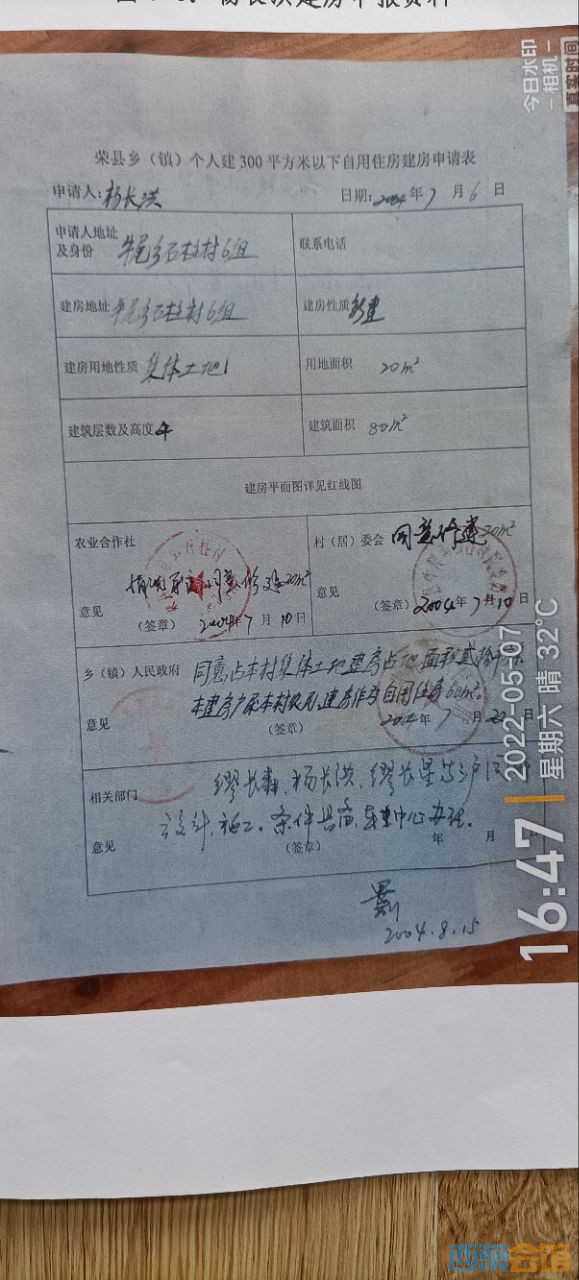 杨长洪建房申报资料
荣县乡（镇）个人建300平方米以下自用住房建房申请表
申请人：杨长洪 日期：2004年7月6日
申请人地址及身份 牛尾乡石柱村6组 联系电话
建房地址 牛尾乡石柱村6组 建房性质 新建
建房用地性质 集体土地 用地面积 20m²
建筑层数及高度 4 建筑面积 80m²
建房平面图详见红线图
农业合作社 村（居）委会 同意修建20m²
同意修建20m²
意见 意见
（签章） 2004年7月10日 （签章） 2004年7月10日
乡（镇）人民政府 同意占本村集体土地建房占地面积贰拾
本建房户属本村农户，建房作为自用住房
意见 （签章） 2004年7月22日
相关部门 缪长森、杨长洪、缪长星
设计、施工。条件具备，中心办理。
意见 （签章） 年 月
2004.8.15
今日水印
-相机-
真实时间
16:47
2022-05-07
星期六 晴 32℃
西秦会馆